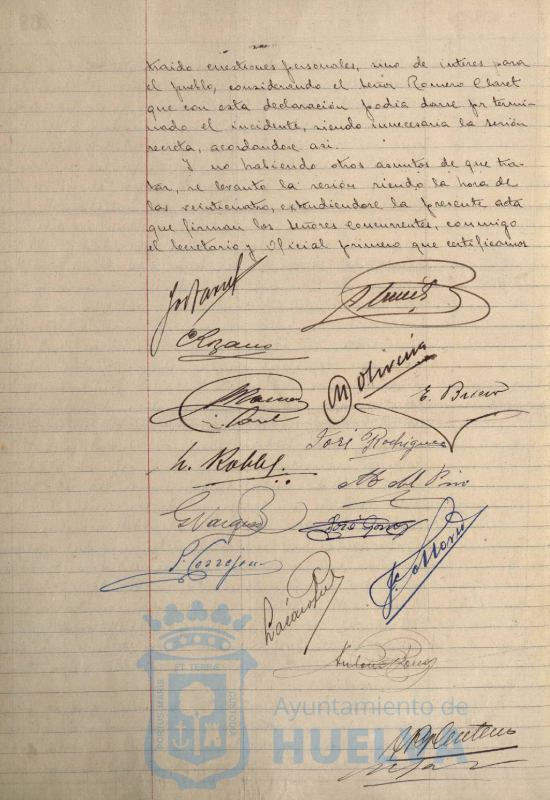 traido cuestiones personales, sino de interes para
el pueblo, considerando el señor Romero Claret
que con esta declaración podía darse pr termi-
nado el incidente, siendo innecesaria la sesión
secreta, acordandose asi.
Y no habiendo otros asuntos de que tra-
tar, se levantó la sesión siendo la hora de
las veinticuatro, extendiendose la presente acta
que firman los señores concurrentes, conmigo
el Secretario y Oficial primero que certificamos
C Lozano
M Oliveira
E. Brieva
José Rodriguez
L. Robles.
M. del Pino
G Vargas
José Gomez
P. Correjon
ET TERRAE
PORTUS MARIS
CUSTODIA
Ayuntamiento de
HUELVA